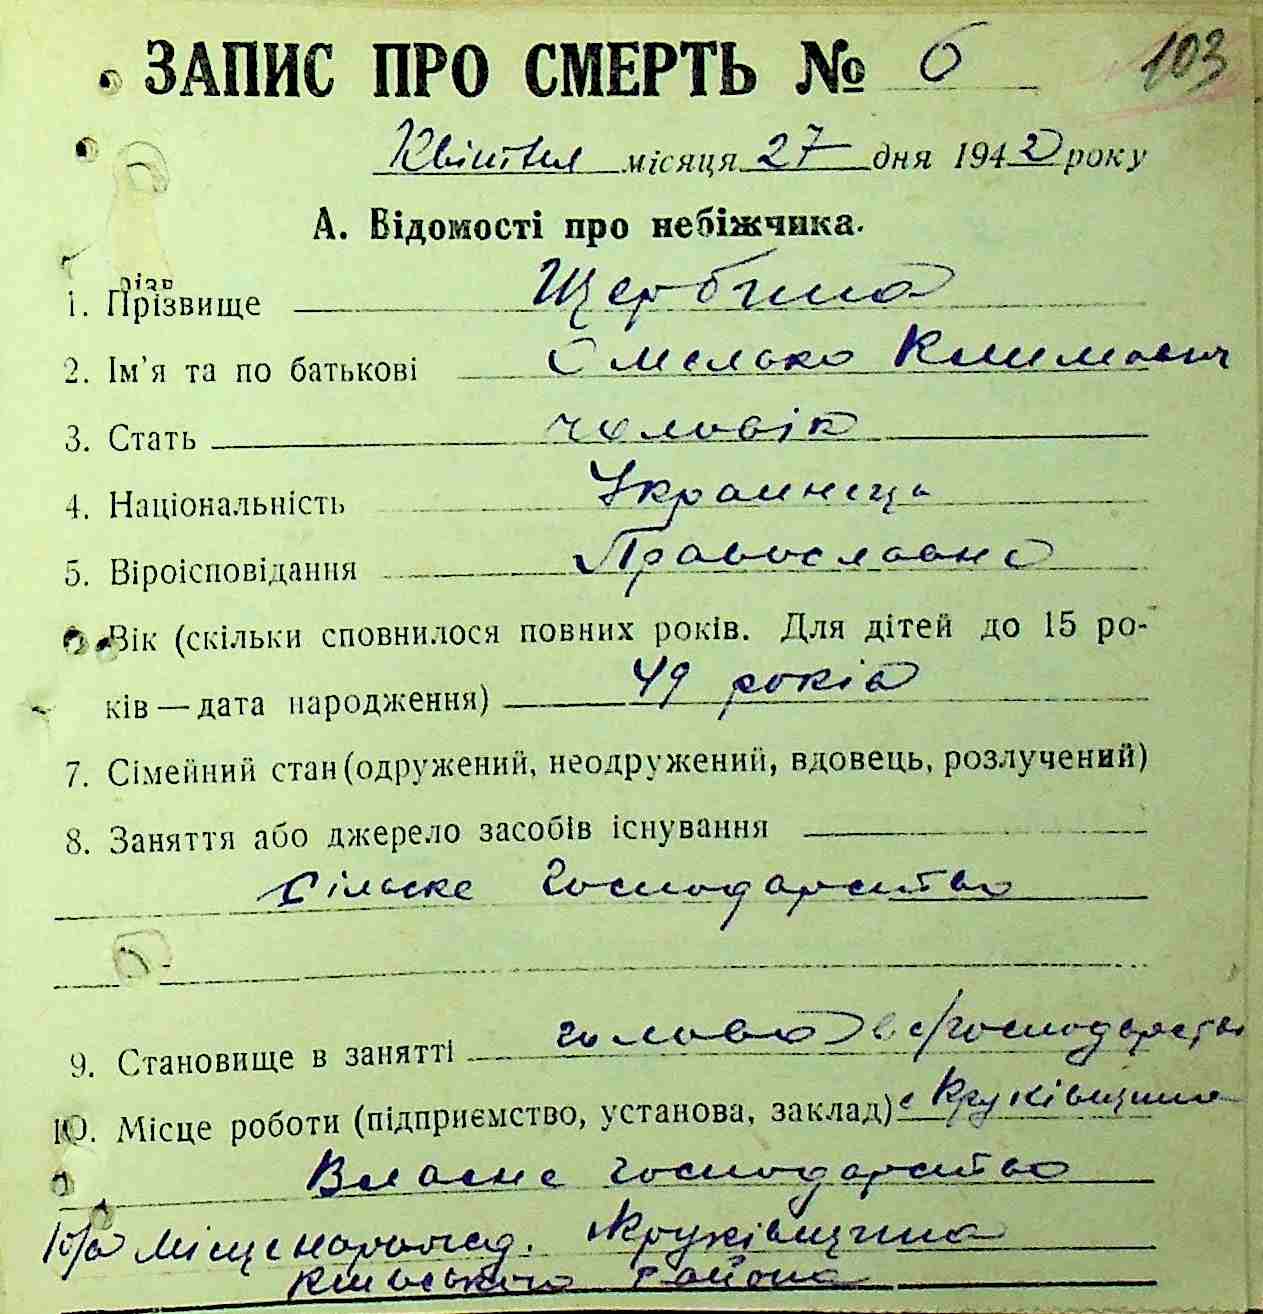 103
ЗАПИС ПРО СМЕРТЬ № 6
Квітня місяця 27 дня 1942 року
А. Відомості про небіжчика.
1. Прізвище Щербина
2. Ім'я та по батькові Омелько Климович
3. Стать чоловік
4. Національність Украинець
5. Віроісповідання Православно
Вік (скільки сповнилося повних років. Для дітей до 15 ро-
ків — дата народження) 49 років
7. Сімейний стан (одружений, неодружений, вдовець, розлучений)
8. Заняття або джерело засобів існування
Сільске господарство
9. Становище в занятті голова в с/господарстві
10. Місце роботи (підприємство, установа, заклад) с Круківщина
Власне господарство
10/а Місце народжд. Круківщина
Київського района